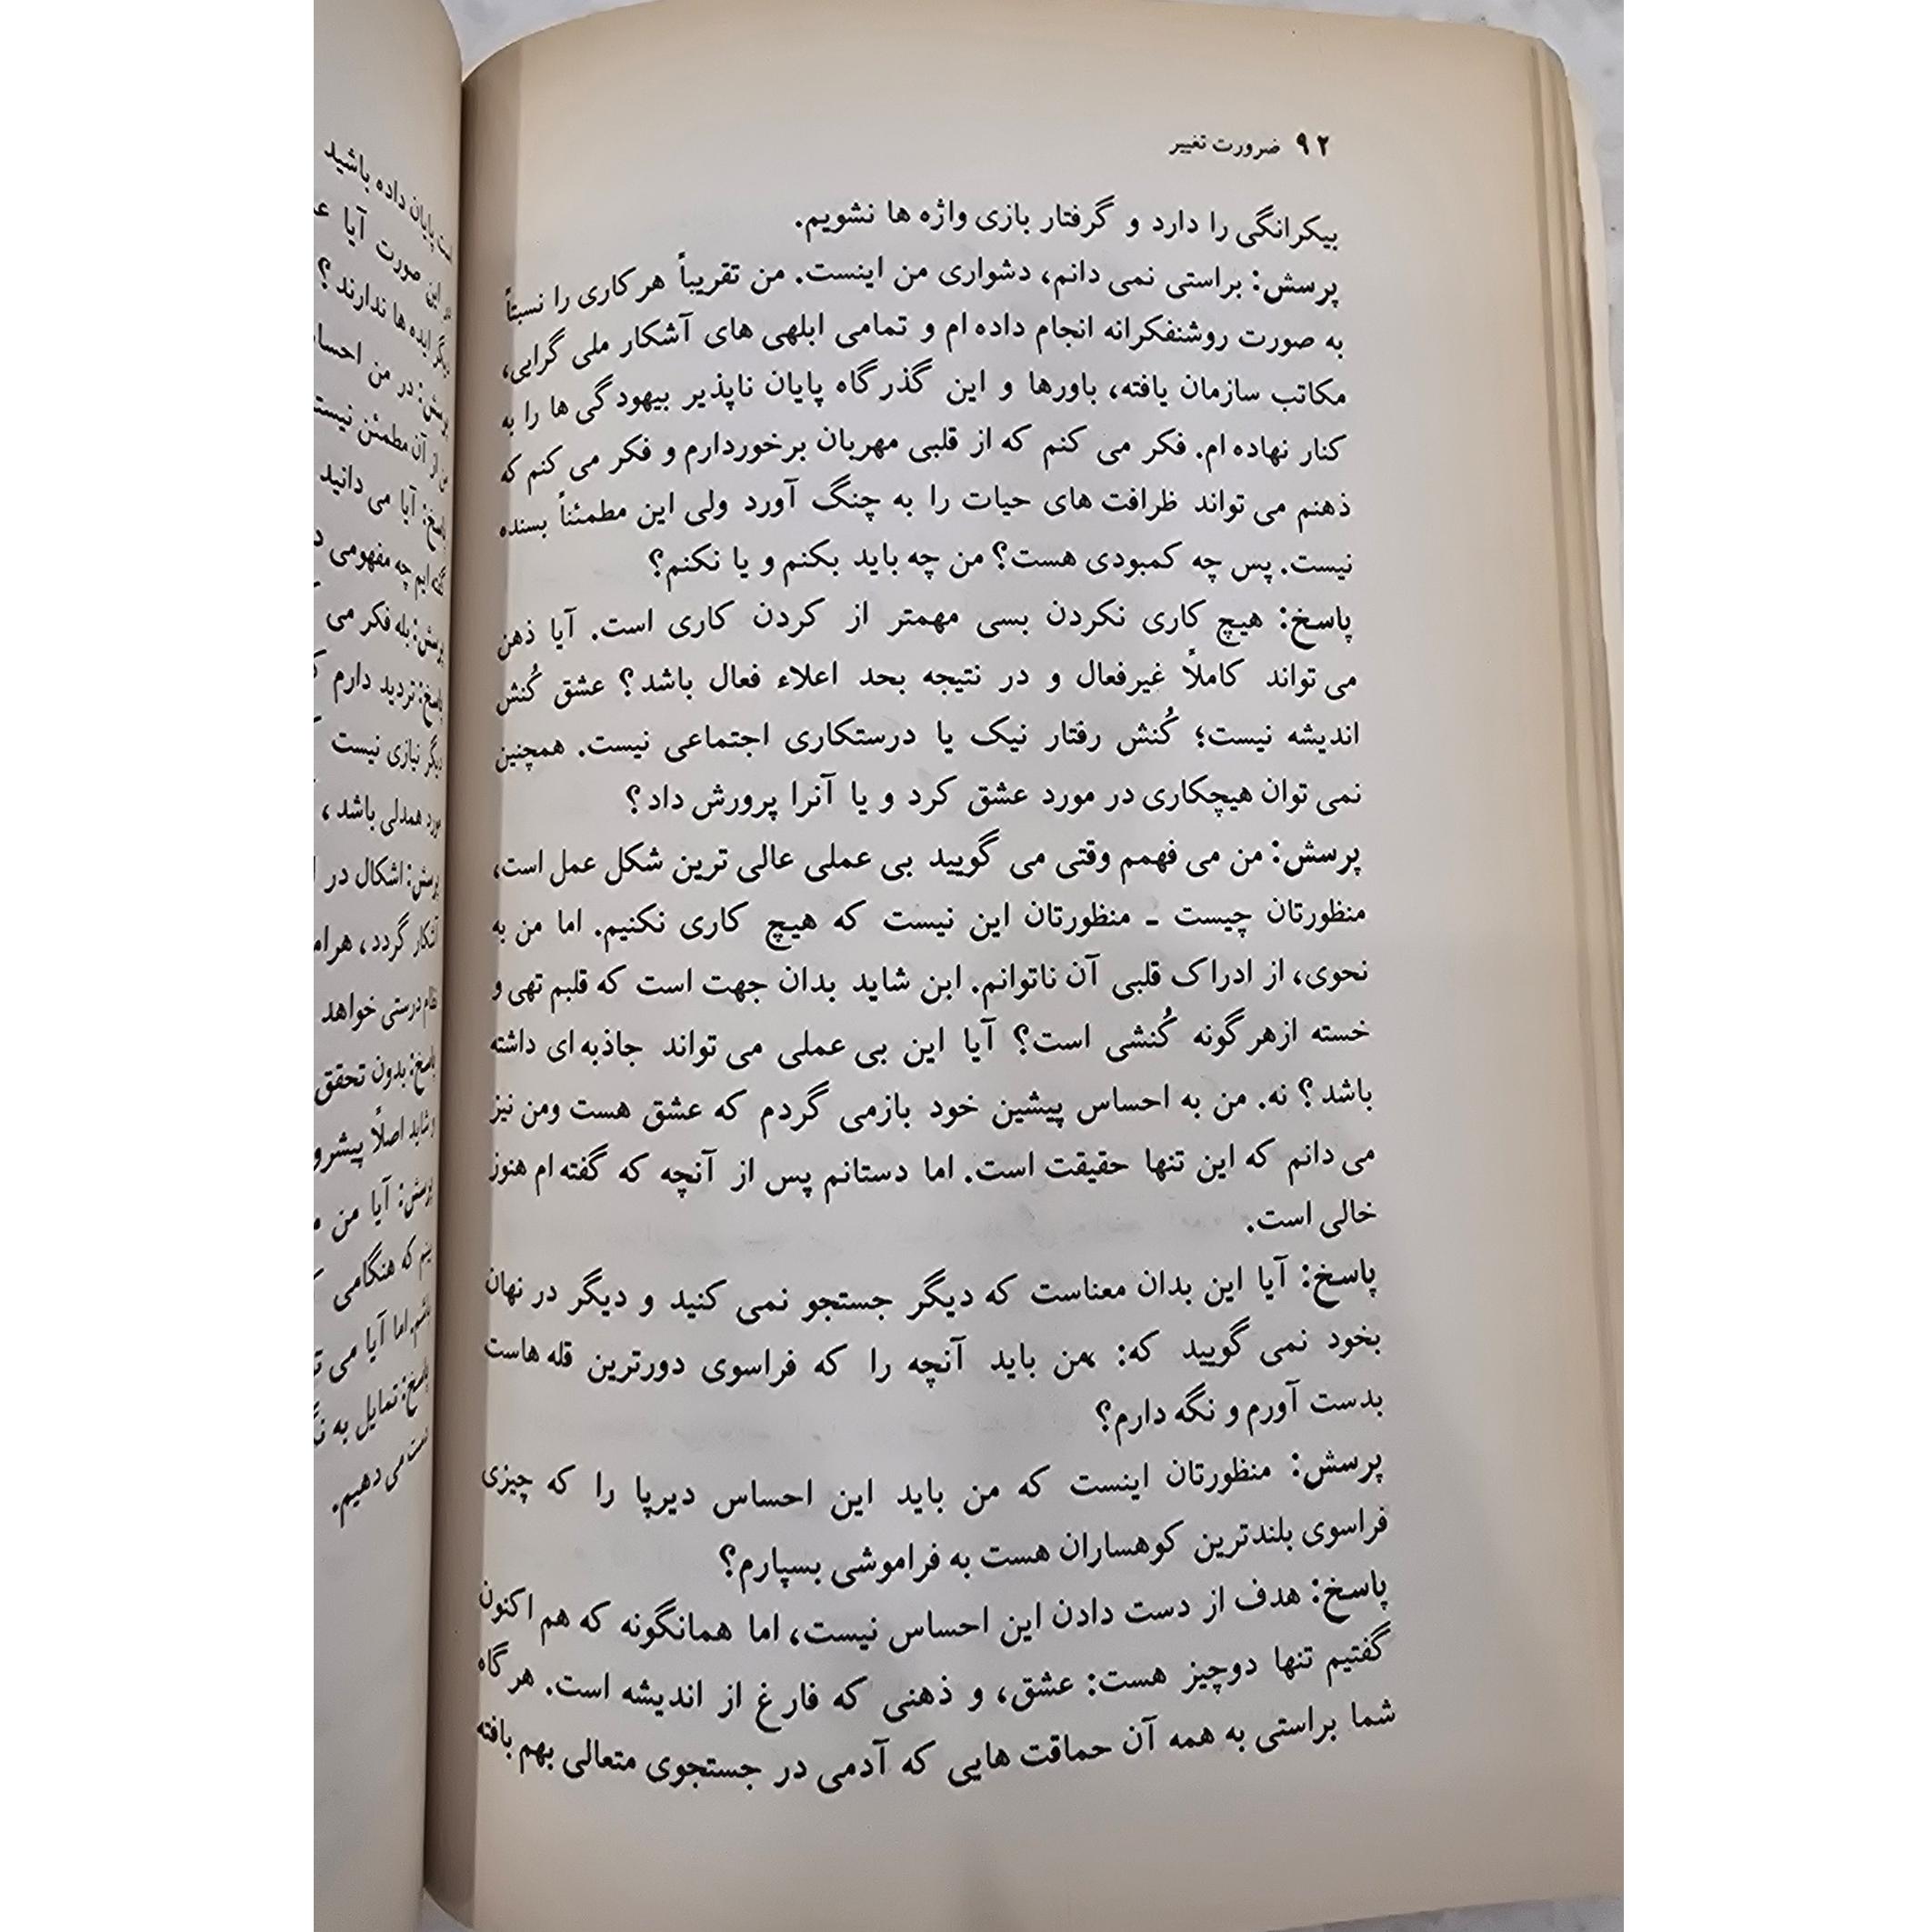 ۹۲ ضرورت تغییر
بیکرانگی را دارد و گرفتار بازی واژه ها نشویم.
پرسش: براستی نمی دانم، دشواری من اینست. من تقریباً هر کاری را نسبتاً
به صورت روشنفکرانه انجام داده ام و تمامی ابلهی های آشکار ملی گرایی،
مکاتب سازمان یافته، باورها و این گذرگاه پایان ناپذیر بیهودگی ها را به
کنار نهاده ام. فکر می کنم که از قلبی مهربان برخوردارم و فکر می کنم که
ذهنم می تواند ظرافت های حیات را به چنگ آورد ولی این مطمئناً بسنده
نیست. پس چه کمبودی هست؟ من چه باید بکنم و یا نکنم؟
پاسخ: هیچ کاری نکردن بسی مهمتر از کردن کاری است. آیا ذهن
می تواند کاملاً غیرفعال و در نتیجه بحد اعلاء فعال باشد؟ عشق کُنش
اندیشه نیست؛ کُنش رفتار نیک یا درستکاری اجتماعی نیست. همچنین
نمی توان هیچکاری در مورد عشق کرد و یا آنرا پرورش داد؟
پرسش: من می فهمم وقتی می گویید بی عملی عالی ترین شکل عمل است،
منظورتان چیست ـ منظورتان این نیست که هیچ کاری نکنیم. اما من به
نحوی، از ادراک قلبی آن ناتوانم. ابن شاید بدان جهت است که قلبم تهی و
خسته ازهر گونه کُنشی است؟ آیا این بی عملی می تواند جاذبه ای داشته
باشد؟ نه. من به احساس پیشین خود بازمی گردم که عشق هست ومن نیز
می دانم که این تنها حقیقت است. اما دستانم پس از آنچه که گفته ام هنوز
خالی است.
پاسخ: آیا این بدان معناست که دیگر جستجو نمی کنید و دیگر در نهان
بخود نمی گویید که: «من باید آنچه را که فراسوی دورترین قله هاست
بدست آورم و نگه دارم؟
پرسش: منظورتان اینست که من باید این احساس دیرپا را که چیزی
فراسوی بلندترین کوهساران هست به فراموشی بسپارم؟
پاسخ: هدف از دست دادن این احساس نیست، اما همانگونه که هم اکنون
گفتیم تنها دوچیز هست: عشق، و ذهنی که فارغ از اندیشه است. هرگاه
شما براستی به همه آن حماقت هایی که آدمی در جستجوی متعالی بهم بافته
پایان داده باشید
این صورت آیا
ایده ها ندارند؟
پرسش: در من
من از آن مطمئن نیست
پاسخ: آیا می دانید
گفته ایم چه مفهومی
پرسش: بله فکر می
پاسخ: تردید دارم
دیگر نیازی نیست
مورد همدلی باشد،
پرسش: اشکال در
آشکار گردد، هر
نظام درستی خواهد
پاسخ: بدون تحقق
و شاید اصلاً
پرسش: آیا من
بینم که هنگامی
باشم. اما آیا می
پاسخ: تمایل به
دست می دهیم.